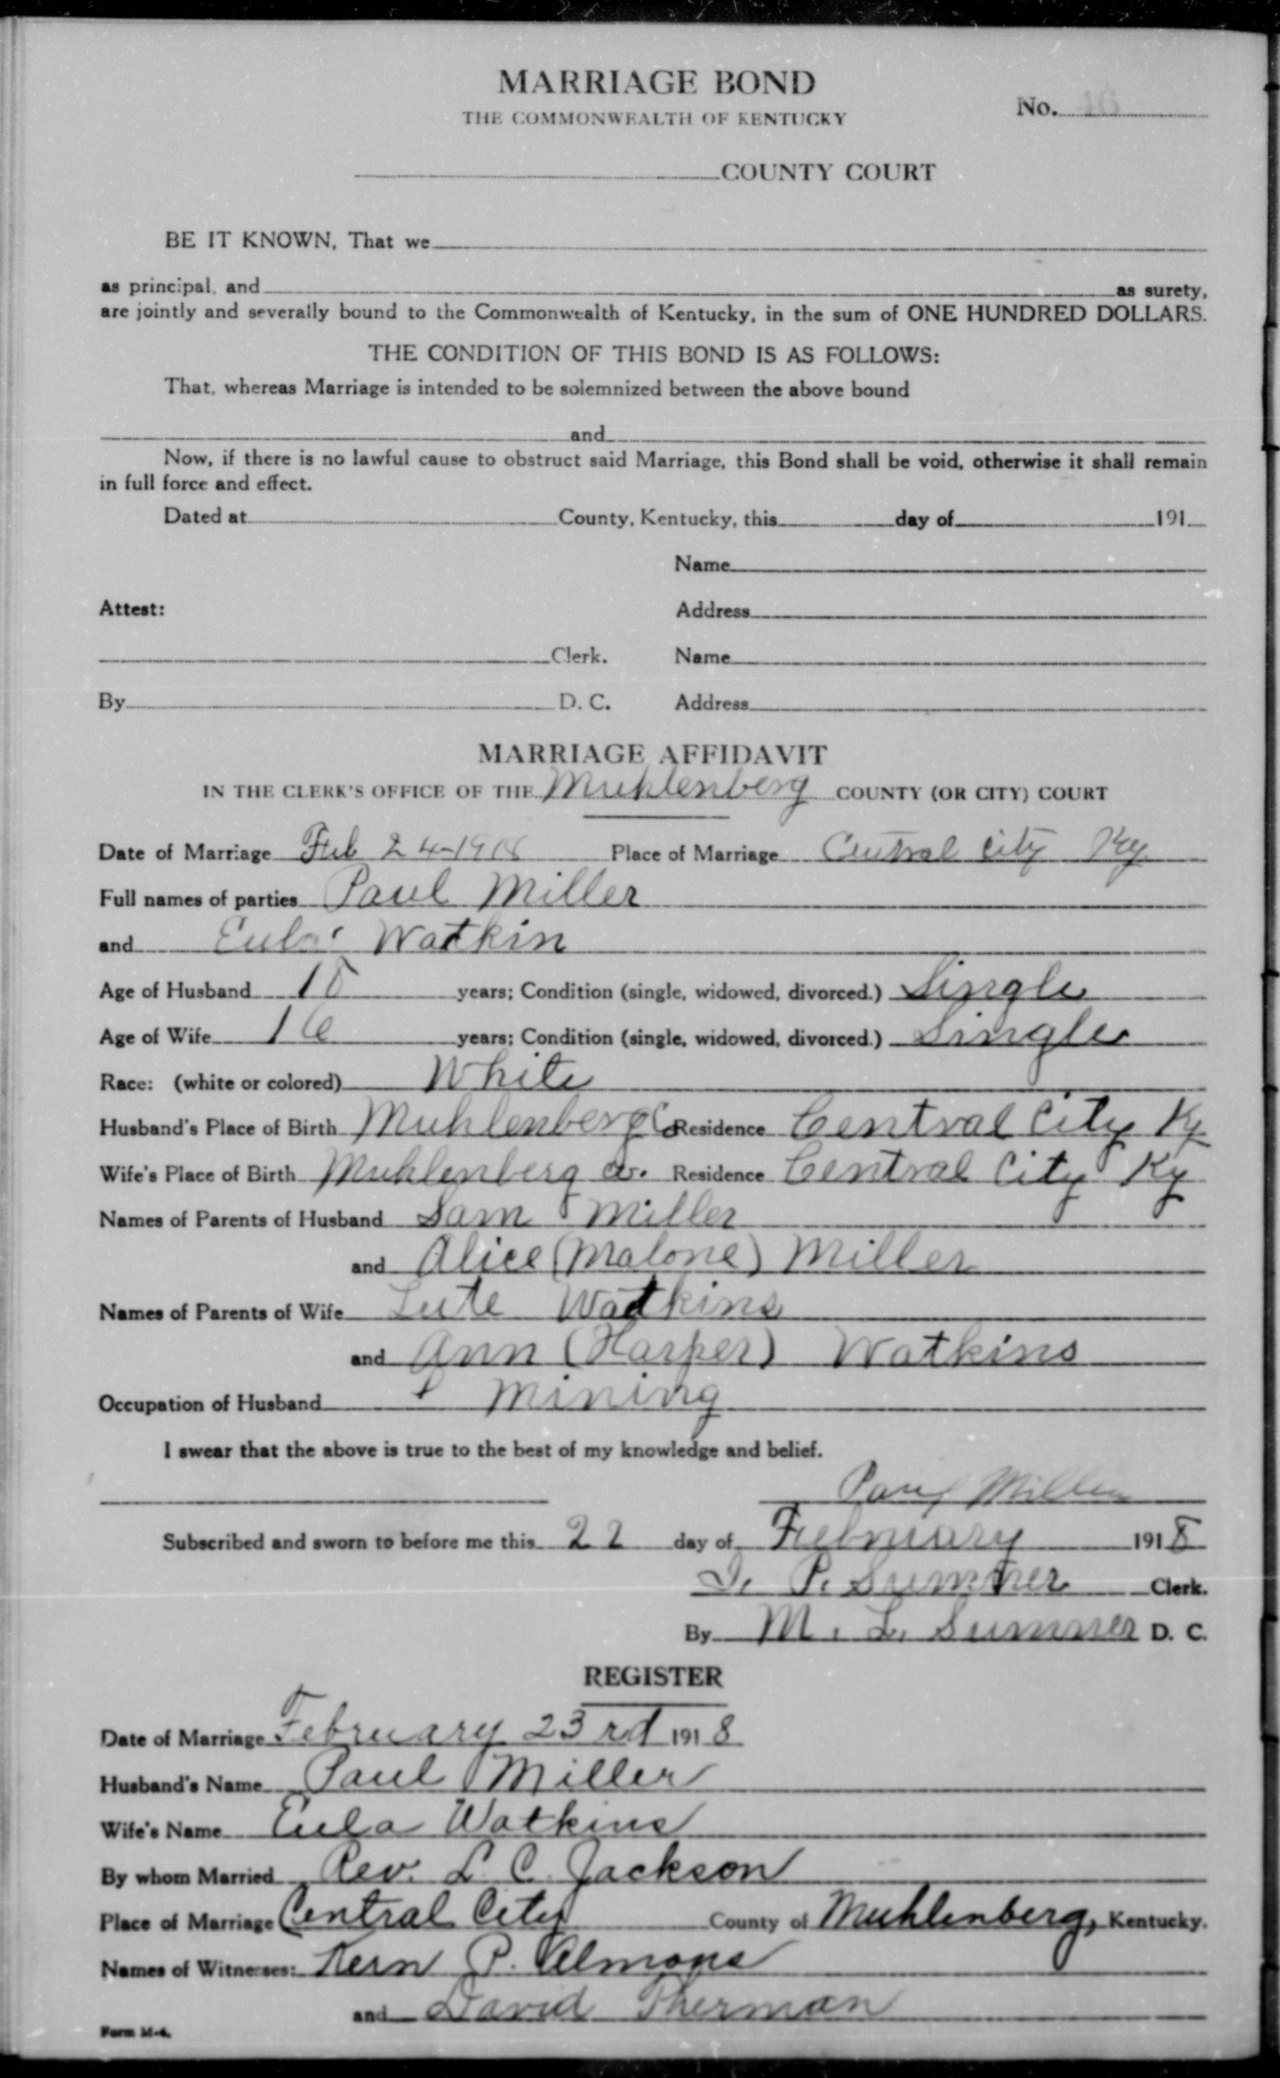 MARRIAGE BOND
THE COMMONWEALTH OF KENTUCKY
No. 46
COUNTY COURT
BE IT KNOWN, That we
as principal, and as surety,
are jointly and severally bound to the Commonwealth of Kentucky, in the sum of ONE HUNDRED DOLLARS.
THE CONDITION OF THIS BOND IS AS FOLLOWS:
That, whereas Marriage is intended to be solemnized between the above bound
and
Now, if there is no lawful cause to obstruct said Marriage, this Bond shall be void, otherwise it shall remain
in full force and effect.
Dated at County, Kentucky, this day of 191
Name
Attest: Address
Clerk. Name
By D. C. Address
MARRIAGE AFFIDAVIT
IN THE CLERK'S OFFICE OF THE Muhlenberg COUNTY (OR CITY) COURT
Date of Marriage Feb 24-1918 Place of Marriage Central City Ky
Full names of parties Paul Miller
and Eula Watkin
Age of Husband 18 years; Condition (single, widowed, divorced.) Single
Age of Wife 16 years; Condition (single, widowed, divorced.) Single
Race: (white or colored) White
Husband's Place of Birth Muhlenberg Co Residence Central City Ky
Wife's Place of Birth Muhlenberg Co. Residence Central City Ky
Names of Parents of Husband Sam Miller
and Alice (Malone) Miller
Names of Parents of Wife Lute Watkins
and Ann (Harper) Watkins
Occupation of Husband Mining
I swear that the above is true to the best of my knowledge and belief.
Paul Miller
Subscribed and sworn to before me this 22 day of February 1918
P. Sumner Clerk.
By M. L. Sumner D. C.
REGISTER
Date of Marriage February 23rd 1918
Husband's Name Paul Miller
Wife's Name Eula Watkins
By whom Married Rev. L. C. Jackson
Place of Marriage Central City County of Muhlenberg, Kentucky.
Names of Witnesses: Kern P. Almons
and David Therman
Form M-4.